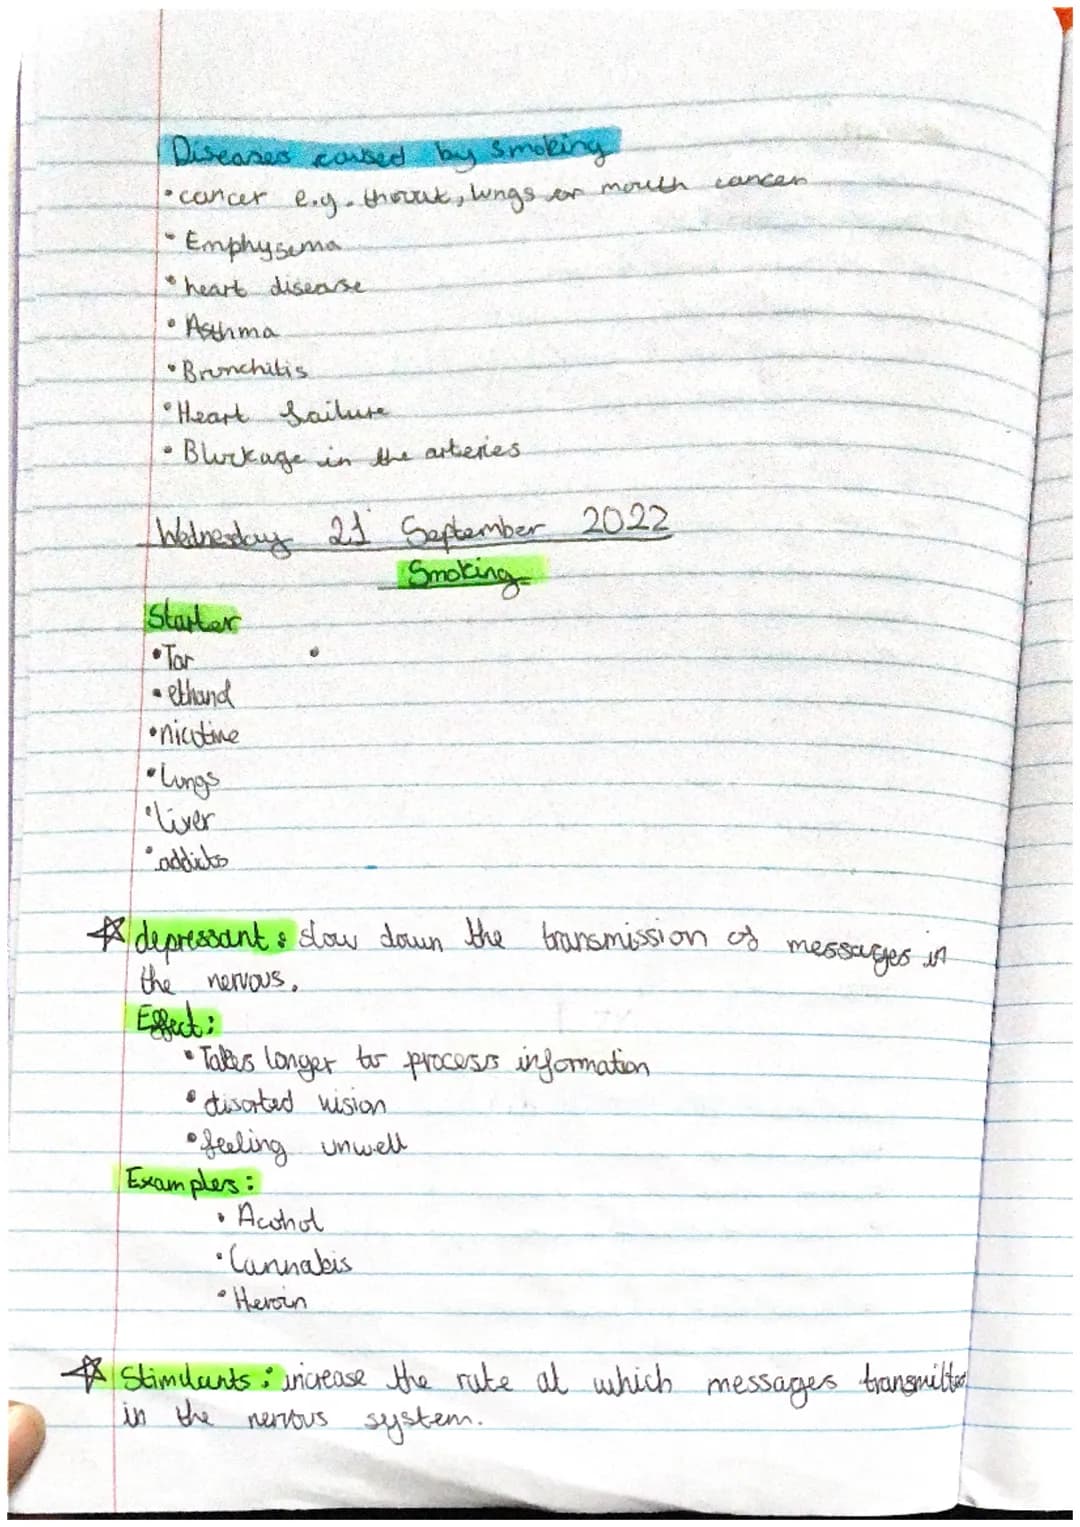 Diseases caused by smoking
• cancer e.g. throat, lungs or mouth cancer
• Emphysema
• heart disease
• Asthma
• Bronchitis
• Heart failure
• Blockage in the arteries
Wednesday 21 September 2022
Smoking
Starter
• Tar •
• ethanol
• nicotine
• Lungs
• liver
• addicts
☆ depressant : slow down the transmission of messages in
the nervous.
Effect :
• Takes longer to process information
• disorted vision
• feeling unwell
Examples :
• Acohol
• Cannabis
• Heroin
☆ Stimulants : increase the rate at which messages transmitted
in the nervous system.